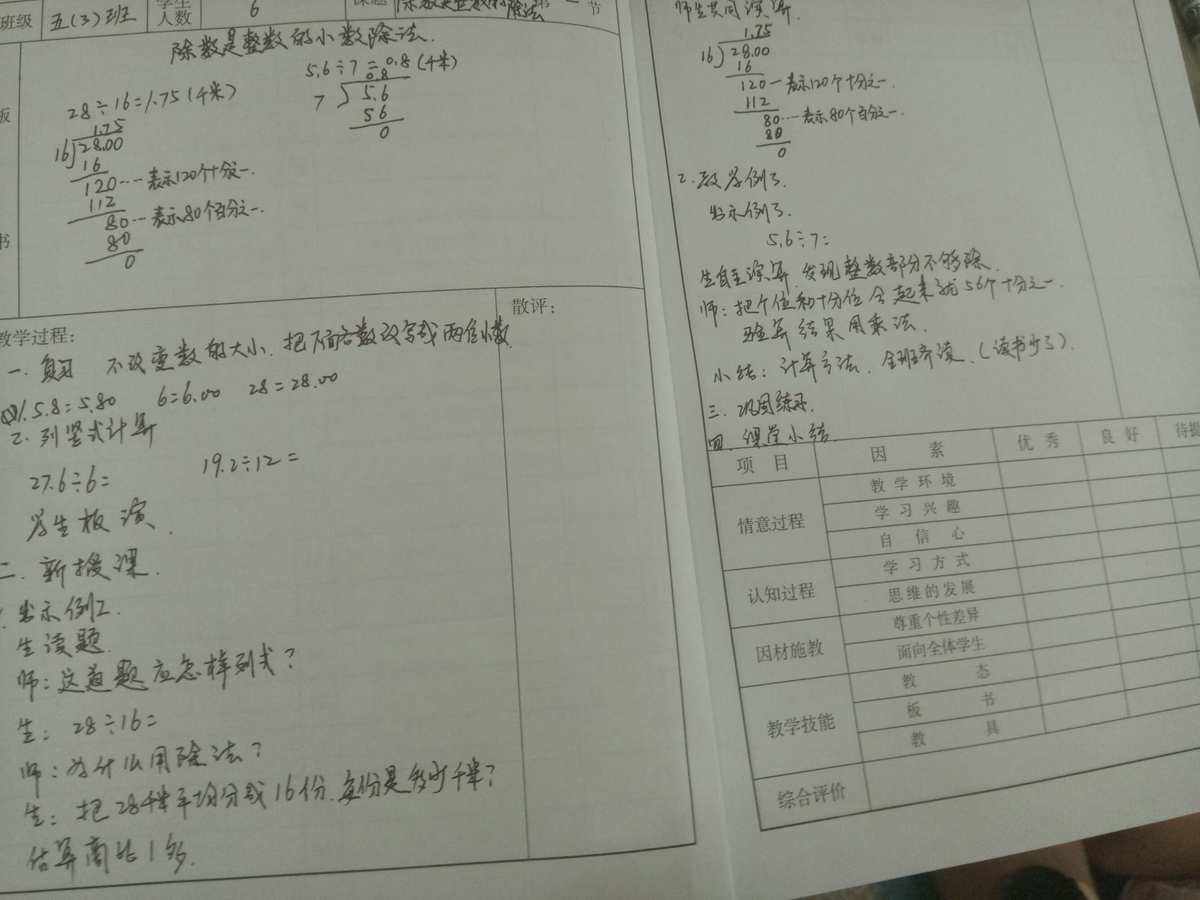 班级 五(3)班 学生人数 6 课题 除数是整数的 除法 第一节
除数是整数的小数除法.
28÷16=1.75(千米)
1.75
16 28.00
16
120…表示120个十分之一.
112
80…表示80个百分之一.
80
0
5.6÷7=0.8(千米)
0.8
7 5.6
56
0
板
书
教学过程:
散评:
一.复习 不改变数的大小.把下面各数改写成两位小数
1.5.8=5.80 6=6.00 28=28.00
2.列竖式计算
27.6÷6= 19.2÷12=
学生板演.
二.新授课.
1.出示例2.
生读题.
师:这道题应怎样列式?
生:28÷16=
师:为什么用除法?
生:把28千米平均分成16份.每份是多少千米?
估算商比1多.
师生共同演算.
1.75
16 28.00
16
120—表示120个十分之一.
112
80…表示80个百分之一.
80
0
2.教学例3.
出示例3.
5.6÷7=
生自主演算,发现整数部分不够除.
师:把个位和十分位合起来就56个十分之一.
验算结果用乘法.
小结:计算方法.全班齐读.(读书P
三.巩固练习.
四.课堂小结
项目 因素 优秀 良好 待提
情意过程 教学环境
学习兴趣
自信心
认知过程 学习方式
思维的发展
因材施教 尊重个性差异
面向全体学生
教学技能 教态
板书
教具
综合评价